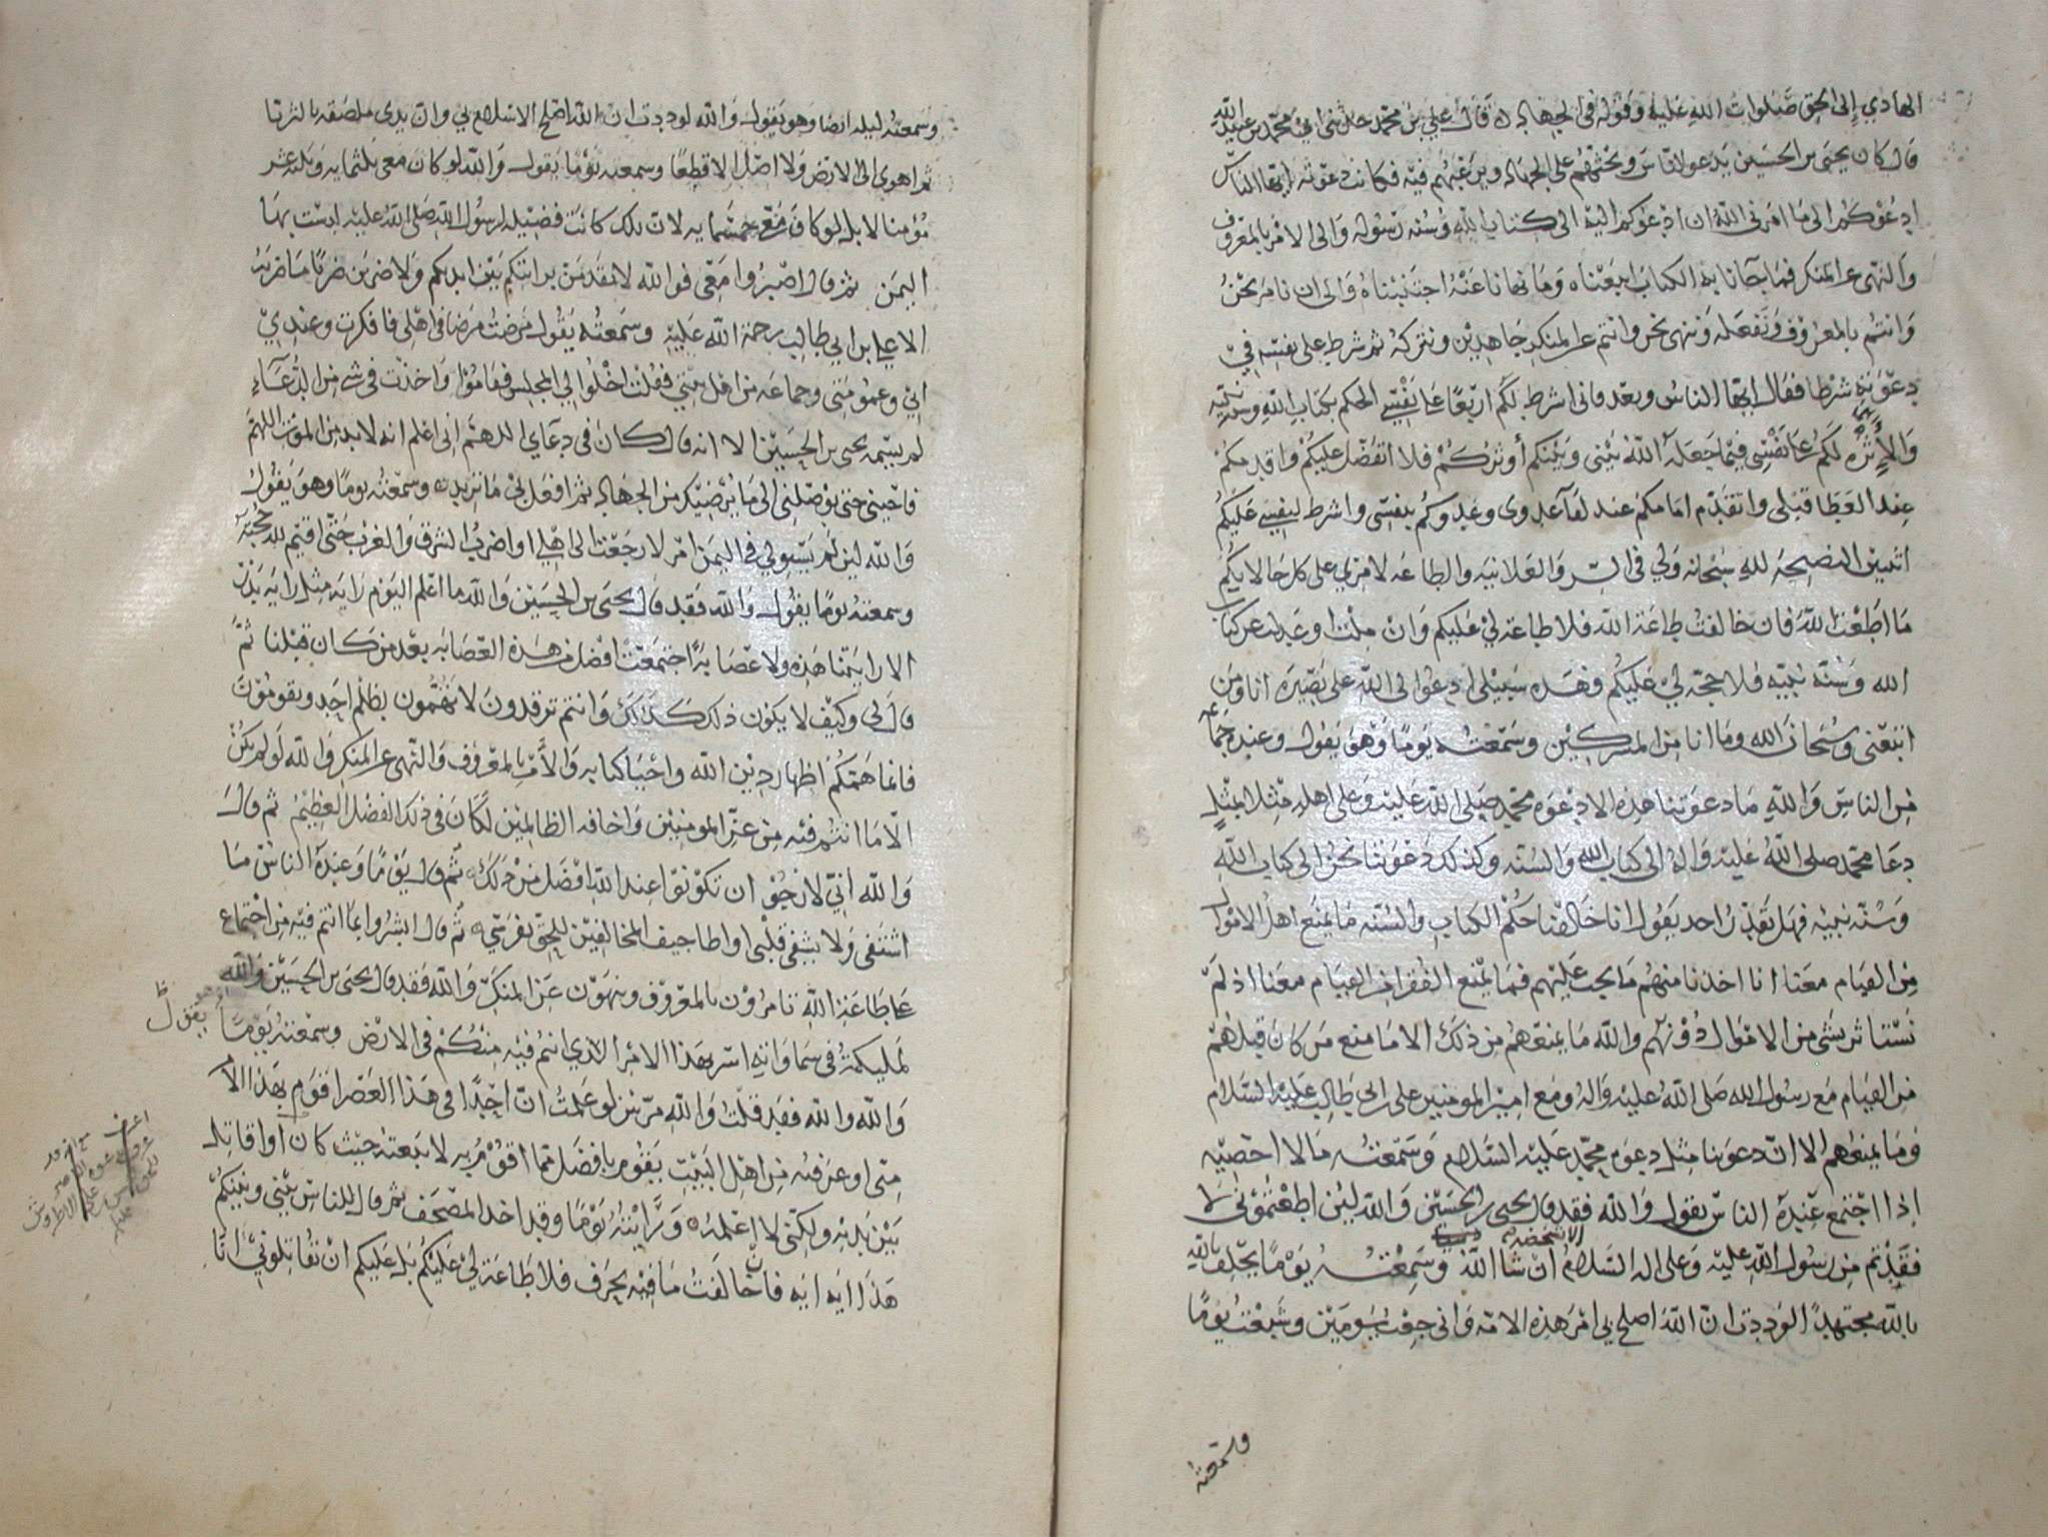 الهادي إلى الحق صلوات الله عليه وقوله في الجهاد قال علي بن محمد حدثني ابي محمد بن عبيد الله
قال كان يحيى بن الحسين يدعو الناس ويحثهم على الجهاد ويرغبهم فيه فكانت دعوته ايها الناس
ادعوكم الى ما امرني الله ان ادعوكم اليه الى كتاب الله وسنة رسوله والى الامر بالمعروف
والنهي عن المنكر فما جآنا به الكتاب اتبعناه وما نهانا عنه اجتنبناه والى ان نامر نحن
وانتم بالمعروف ونفعله وننهى نحن وانتم عن المنكر جاهدين ونتركه ثم شرط على نفسه في
دعوته شرطا فقال ايها الناس وبعد فاني اشرط لكم اربعا على نفسي الحكم بكتاب الله وسنة نبيه
والاثره لكم على نفسي فيما جعله الله بيني وبينكم أوثركم فلا اتفضل عليكم واقدمكم
عند العطا قبلي واتقدم امامكم عند لقآ عدوي وعدوكم بنفسي واشرط لنفسي عليكم
اثنين النصيحة لله سبحانه ولي في السر والعلانيه والطاعه لامري على كل حالاتكم
ما اطعت الله فان خالفت طاعة الله فلا طاعة لي عليكم وان ملت وعدلت عن كتاب
الله وسنة نبيه فلا حجه لي عليكم فهذه سبيلي ادعوا الى الله على بصيره انا ومن
اتبعني وسبحان الله وما انا من المشركين وسمعته يوما وهو يقول وعنده جماعه
من الناس والله ما دعوتنا هذه الا دعوة محمد صلى الله عليه وعلى اهله مثلا بمثل
دعا محمد صلى الله عليه واله الى كتاب الله والسنه وكذلك دعوتنا نحن الى كتاب الله
وسنة نبيه فهل يقدر احد يقول انا خالفنا حكم الكتاب والسنه ما يمنع اهل الاموال
من القيام معنا انا اخذنا منهم ما يجب عليهم فما يمنع الفقرا من القيام معنا اذ لم
نستاثر بشي من الاموال دونهم والله ما يمنعهم من ذلك الا ما منع من كان قبلهم
من القيام مع رسول الله صلى الله عليه واله ومع امير المومنين علي بن ابي طالب عليه السلام
وما يمنعهم الا ان دعوتنا مثل دعوة محمد عليه السلام وسمعته مالا احصيه
إذا اجتمع عنده الناس يقول والله فقد قال يحيى بن الحسين والله لين اطعتموني لا
فقدتم من رسول الله عليه وعلى اله السلام الا شخصه ان شا الله وسمعته يوما يحلف بالله
بالله مجتهدا لوددت ان الله اصلح بي امر هذه الامه واني جعت يومين وشبعت يوما
وسمعته
وسمعته ليله ايضا وهو يقول والله لوددت ان الله اصلح الاسلام بي وان يدي ملصقه بالثريا
ثم اهوي الى الارض ولا اصل الا قطعا وسمعته يوما يقول والله لو كان معي ثلثمايه وثلثه عشر
مؤمنا لا بل لو كان معي خمسمايه لان تلك كانت فضيله لرسول الله صلى الله عليه لدست بها
اليمن ثم قال اصبروا معي فوالله لاتقدمن برايتكم بين ايديكم ولاضربن ضربا ما ضربه
الا علي بن ابي طالب رحمة الله عليه وسمعته يقول مرضت مرضا في اهلي فافكرت وعندي
ابي وعمومتي وجماعه من اهل بيتي فقلت اخلوا لي المجلس فقاموا واخذت في شي من الدعآء
لم يسمه يحيى بن الحسين الا انه قال كان في دعاي اللهم اني اعلم انه لا بد من الموت اللهم
فاحيني حتى توصلني الى ما يرضيك من الجهاد ثم افعل بي ما تريد وسمعته يوما وهو يقول
والله لين لم يستو لي في اليمن امر لا رجعت الى اهلي او اضرب الشرق والغرب حتى اقيم لله حجته
وسمعته يوما يقول والله فقد قال يحيى بن الحسين والله ما اعلم اليوم رايه مثل رايه بدر
الا رايتنا هذه ولا عصابة اجتمعت افضل من هذه العصابه بعد من كان قبلنا ثم
قال لي وكيف لا يكون ذلك كذلك وانتم ترقدون لا تهتمون بظلم احد وتقومون
فانما همتكم اظهار دين الله واحيا كتابه والامر بالمعروف والنهي عن المنكر والله لو لم يكن
الا ما انتم فيه من عز المومنين واخافه الظالمين لكان في ذلك الفضل العظيم ثم قال
والله اني لارجو ان تكونوا عند الله افضل من ذلك ثم قال يوما وعنده الناس ما
اشتفى ولا يشفى قلبي او اطا جيف المخالفين للحق بفرسي ثم قال ابشروا بما انتم فيه من اجتماع
على طاعة الله تامرون بالمعروف وتنهون عن المنكر والله فقد قال يحيى بن الحسين والله
لمليكته في سماواته اسر بهذا الامر الذي انتم فيه منكم في الارض وسمعته يوما يقول
والله والله فقد قلت والله مرتين لو علمت ان احدا في هذا العصر اقوم بهذا الامر
مني او عرفته من اهل البيت يقوم بافضل مما اقوم به لاتبعته حيث كان أو اقاتل
بين يديه ولكني لا اعلمه ورايته يوما وقد اخذ المصحف ثم قال للناس بيني وبينكم
هذا ايه ايه فان خالفت ما فيه بحرف فلا طاعة لي عليكم بل عليكم ان تقاتلوني انا